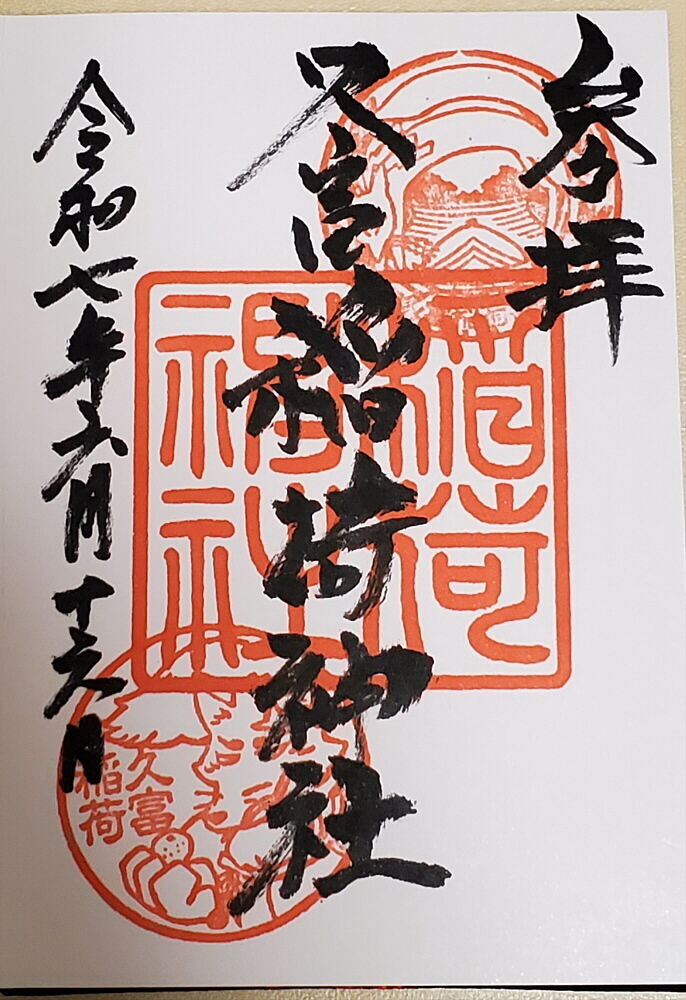 参拝
久富稲荷神社
令和七年六月十六日
稲荷
神社
久富
稲荷